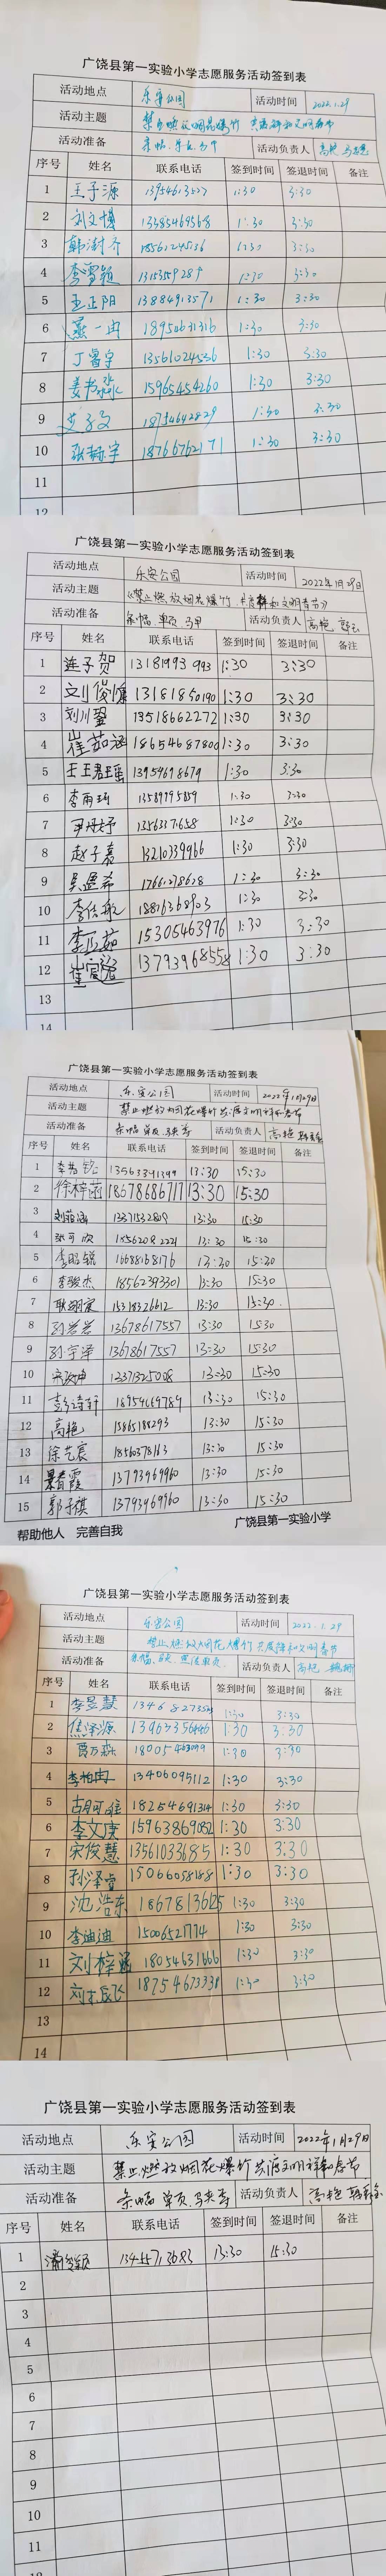 广饶县第一实验小学志愿服务活动签到表
活动地点 乐安公园 活动时间 2022.1.29
活动主题 禁止燃放烟花爆竹 共度祥和文明春节
活动准备 活动负责人 高艳
序号 姓名 联系电话 签到时间 签退时间 备注
1 王子源 1:30 3:30
2 刘文博 1:30 3:30
3 1:30 3:30
4 李雪颖 1:30 3:30
5 孟正阳 13884913571 1:30 3:30
6 燕一冉 1:30 3:30
7 丁睿宇 13561024536 1:30 3:30
8 15965454260 1:30 3:30
9 艾子文 18754642829 1:30 3:30
10 张赫宇 18766762171 1:30 3:30
11
12
广饶县第一实验小学志愿服务活动签到表
活动地点 乐安公园 活动时间 2022年1月29日
活动主题 《禁止燃放烟花爆竹 文明春节》
活动准备 条幅、单页、马甲 活动负责人 高艳
序号 姓名 联系电话 签到时间 签退时间 备注
1 连子贺 13181993993 1:30 3:30
2 刘俊 13181850190 1:30 3:30
3 刘川 13518662272 1:30 3:30
4 崔茹涵 18654687800 1:30 3:30
5 王王君瑶 13954698679 1:30 3:30
6 李雨 13589795859 1:30 3:30
7 1:30 3:30
8 赵子嘉 13210339966 1:30 3:30
9 1:30 3:30
10 1:30 3:30
11 15305463976 1:30 3:30
12 13793968558 1:30 3:30
13
14
广饶县第一实验小学志愿服务活动签到表
活动地点 乐安公园 活动时间 2022年1月29日
活动主题 禁止燃放烟花爆竹 共度文明祥和春节
活动准备 条幅 单页 马夹 活动负责人 高艳
序号 姓名 联系电话 签到时间 签退时间 备注
1 13:30 15:30
2 徐梓涵 18678686717 13:30 15:30
3 刘 13371532809 13:30 15:30
4 18562082221 13:30 15:30
5 李昭锐 16688168176 13:30 15:30
6 李骏杰 18562393301 13:30 15:30
7 15318326612 13:30 15:30
8 孙岩岩 13678617557 13:30 15:30
9 孙宇泽 13678617557 13:30 15:30
10 13:30 15:30
11 彭诗轩 18954669789 13:30 15:30
12 高艳 15865188293 13:30 15:30
13 徐艺宸 18560578163 13:30 15:30
14 景春霞 13793969960 13:30 15:30
15 郭子祺 13793969960 13:30 15:30
帮助他人 完善自我 广饶县第一实验小学
广饶县第一实验小学志愿服务活动签到表
活动地点 乐安公园 活动时间 2022.1.29
活动主题 禁止燃放烟花爆竹 共度祥和文明春节
活动准备 活动负责人 高艳
序号 姓名 联系电话 签到时间 签退时间 备注
1 李昱慧 1:30 3:30
2 焦泽源 13963356446 1:30 3:30
3 贾万森 1:30 3:30
4 李柏冉 13406095112 1:30 3:30
5 18254691314 1:30 3:30
6 李文庚 15963869082 1:30 3:30
7 宋俊慧 13561033685 1:30 3:30
8 孙泽萱 15066058188 1:30 3:30
9 沈浩东 18678136125 1:30 3:30
10 李迪迪 15006521774 1:30 3:30
11 刘梓涵 18054631666 1:30 3:30
12 18754673338 1:30 3:30
13
14
广饶县第一实验小学志愿服务活动签到表
活动地点 乐安公园 活动时间 2022年1月29日
活动主题 禁止燃放烟花爆竹 共度文明祥和春节
活动准备 条幅 单页 马夹等 活动负责人 高艳
序号 姓名 联系电话 签到时间 签退时间 备注
1 13455713683 13:30 15:30
2
3
4
5
6
7
8
9
10
11